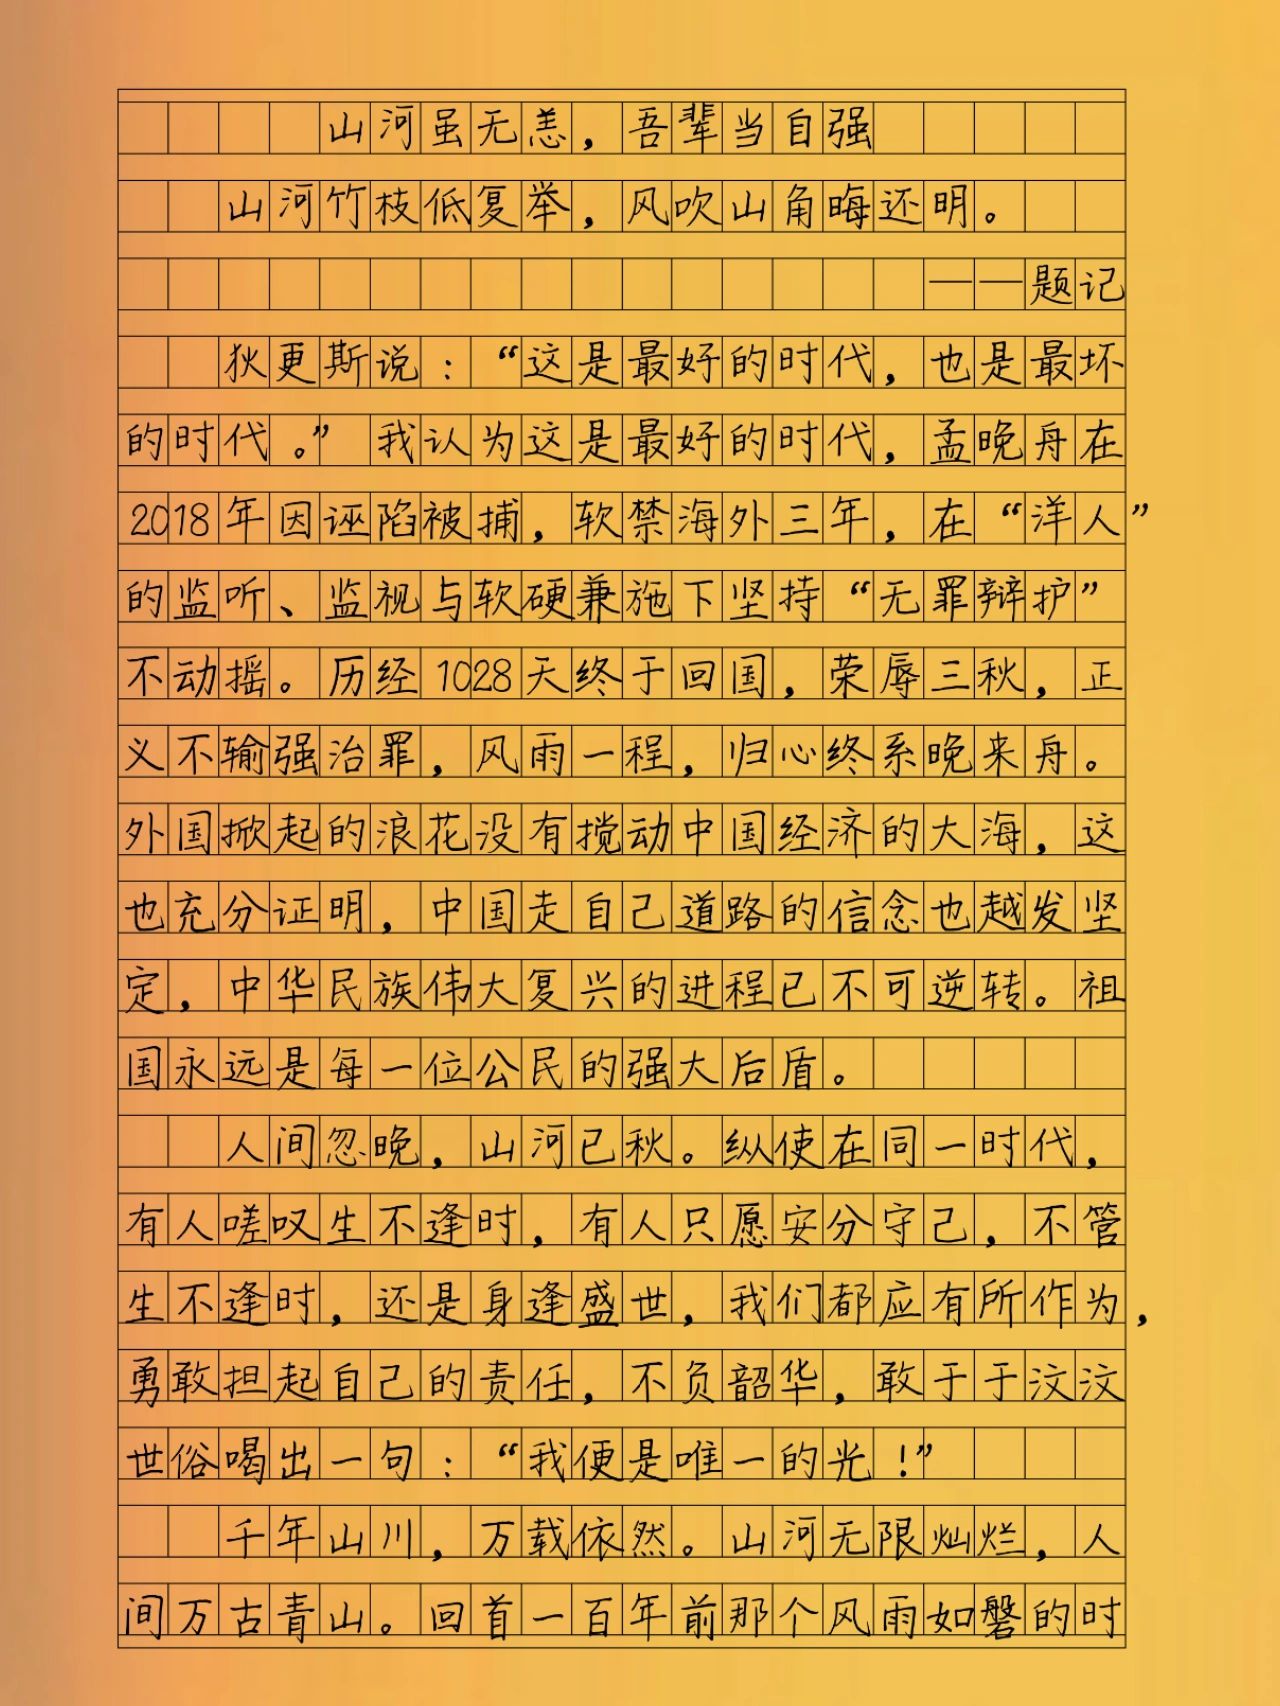 山河虽无恙，吾辈当自强
山河竹枝低复举，风吹山角晦还明。
——题记
狄更斯说：“这是最好的时代，也是最坏
的时代。”我认为这是最好的时代，孟晚舟在
2018年因诬陷被捕，软禁海外三年，在“洋人”
的监听、监视与软硬兼施下坚持“无罪辩护”
不动摇。历经1028天终于回国，荣辱三秋，正
义不输强治罪，风雨一程，归心终系晚来舟。
外国掀起的浪花没有搅动中国经济的大海，这
也充分证明，中国走自己道路的信念也越发坚
定，中华民族伟大复兴的进程已不可逆转。祖
国永远是每一位公民的强大后盾。
人间忽晚，山河已秋。纵使在同一时代，
有人嗟叹生不逢时，有人只愿安分守己，不管
生不逢时，还是身逢盛世，我们都应有所作为，
勇敢担起自己的责任，不负韶华，敢于于汶汶
世俗喝出一句：“我便是唯一的光！”
千年山川，万载依然。山河无限灿烂，人
间万古青山。回首一百年前那个风雨如磐的时